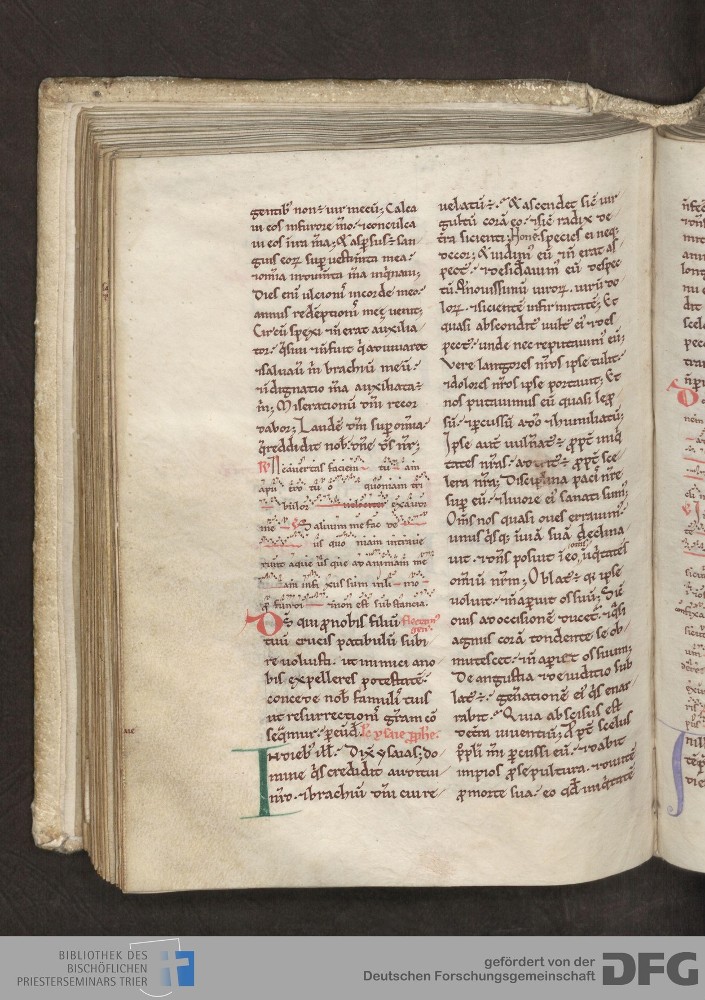 gentib; non ÷ uir mecū; Calca
ui eos in furore mō · ⁊ conculca
ui eos in ira m̄a; & aspersus ÷ san
guis eoꝝ sup uestim̄ta mea ·
⁊ om̄ia indum̄ta m̄a inq̇naui;
Dies eni ulcionis in corde meo ·
annus redēptionis meę uenit;
Circū spexi ⁊ n̄ erat auxilia
tor · q̄siui ⁊ n̄ fuit q̇ adiuuaret
⁊ saluauit m̄ brachiū meū ·
⁊ indignatio m̄a auxiliata ÷
m̄; Miserationū dn̄i recor
dabor; Laudē dn̄i sup om̄ia ·
q̄ reddidit nob̄ · dn̄s ds̄ nr̄;
R̄ Ne auertas faciem tuam
a puero tuo quoniam tri
bulor uelociter exaudi
me V Saluum me fac de
us quoniam intraue
runt aque usque ad animam me
am infixus sum in limo
profundi ⁊ non est substancia.
Ds̄ qui p nobis filiū Flectam̄
gen̄.
tuū crucis patibulū subi
re uoluisti · ut inimici a no
bis expelleres potestatē ·
concede nob̄ famulis tuis
ut resurrectionis gr̄am cō
seq̄mur · p eund̄. Lc̄ ysaie ꝓphe.
In dieb; ill̄ · Dix̄ ysaias; do
mine q̇s credidit auditui
nr̄o · ⁊ brachiū dn̄i cui re
uelatū ÷ · & ascendet sic̄ uir
gultū corā eo · ⁊ sic̄ radix de
t̄ra sicienti; Non ÷ species ei neq;
decor; & uidim eū · ⁊ n̄ erat as
pect · ⁊ desiderauim eū · despec
tū & nouissimū uiroꝝ · uirū do
loꝝ · ⁊ scientē infirmitatē; Et
quasi absconditus uult ei ⁊ des
pect · unde nec reputauim eū;
Vere langores nr̄os ipse tulit ·
⁊ dolores nr̄os ipse portauit; Et
nos putauimus eū quasi lep̄
sū · ⁊ pcussū a dō · ⁊ humiliatū;
Ipse aut̄ uulnat ÷ ꝓpt̄ iniq̇
tates nr̄as · adtrit ÷ ꝓpt̄ sce
lera nr̄a; Disciplina pacis nr̄e
sup eū · ⁊ liuore ei sanati sum;
Om̄s nos quasi oues errauim
unus q̇sq; ī uiā suā declina
uit · ⁊ dn̄s posuit ī eo om̄s iniq̇tates
om̄iū nr̄m; Oblat ÷ q̇ ipse
uoluit · ⁊ n̄ aperuit os suū; Sic̄
ouis ad occisionē ducet̄ · ⁊ q̄si
agnus corā tondente se ob
mutescet · ⁊ n̄ aperiet os suum;
De angustia ⁊ de iuditio sub
lat ÷ · gen̄ationē ei q̇s enar
rabit · Quia abscisus est
de t̄ra uiuentiū; ꝓpt̄ scelus
ppl̄i mi percussi eū · ⁊ dabit
impios p sepultura · ⁊ diuitē
p morte sua · eo qd̄ iniq̇tatē
BIBLIOTHEK DES
BISCHÖFLICHEN
PRIESTERSEMINARS TRIER
gefördert von der
Deutschen Forschungsgemeinschaft
DFG